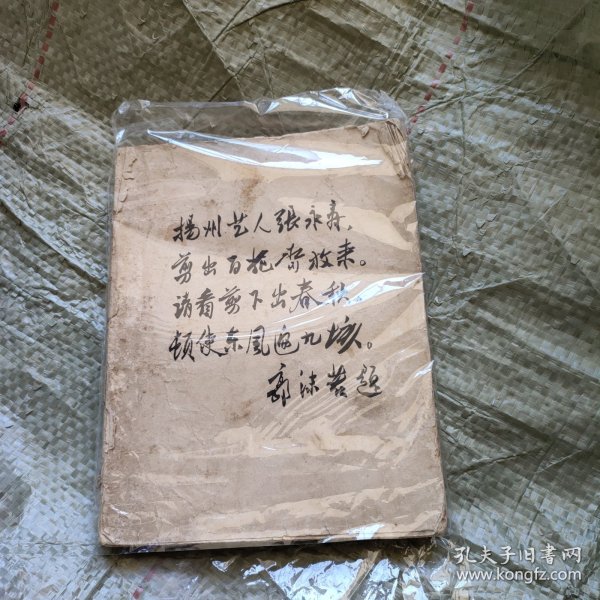 扬州艺人張永寿，
剪出百花齐放来。
请看剪下出春秋，
顿使东风遍九垓。
郭沫若题
孔夫子旧書网
www.kongfz.com